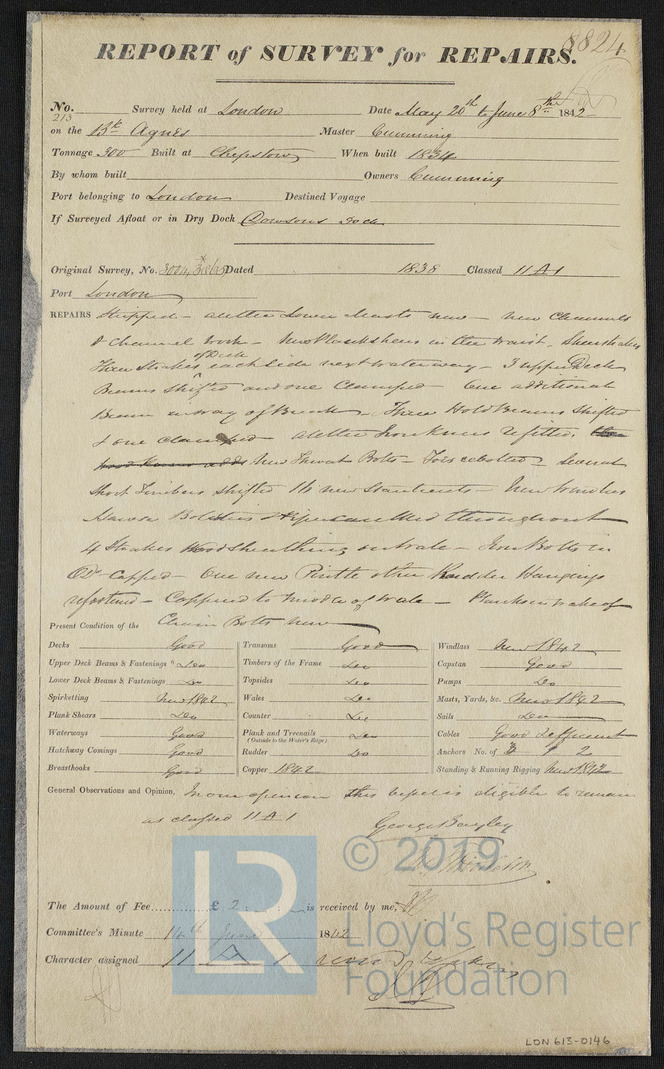 8824
REPORT of SURVEY for REPAIRS.
No. 213 Survey held at London Date May 20th to June 8th 1842
on the Bk Agnes Master Cumming
Tonnage 300 Built at Chepstow When built 1834
By whom built Owners Cumming
Port belonging to London Destined Voyage
If Surveyed Afloat or in Dry Dock Dawsons Dock
Original Survey, No. Dated 1838 Classed 11 A 1
Port London
REPAIRS Stripped – all the Lower Masts new – new Channels
& Channel work – New Plankshears in the waist, Sheerstrakes
Three Strakes of Deck each side next waterway – 3 upper Deck
Beams Shifted and one Clamped – One additional
Beam in way of Break – Three Hold Beams Shifted
& one clamped – all the Iron Knees refitted
New Throat Bolts – Toes rebolted – Several
Short Timbers shifted 16 new Stantients – New Windlass
Hawse Bolsters & pipes caulked throughout
4 Strakes Wood Sheathing on wale – Iron Bolts in
Do Capped – One new Pintle other Rudder Hangings
refastend – Coppered to middle of Wale – Planks in wake of
Chain Bolts new
Present Condition of the
Decks Good
Upper Deck Beams & Fastenings Do
Lower Deck Beams & Fastenings Do
Spirketting New 1842
Plank Shears Do
Waterways Good
Hatchway Comings Good
Breasthooks Good
Transoms Good
Timbers of the Frame Do
Topsides Do
Wales Do
Counter Do
Plank and Treenails Do
(Outside to the Water's Edge)
Rudder Do
Copper 1842
Windlass New 1842
Capstan Good
Pumps Do
Masts, Yards, &c. New 1842
Sails Do
Cables Good Sufficient
Anchors No. of 3 1 2
Standing & Running Rigging New 1842
General Observations and Opinion, In our opinion this vessel is eligible to remain
as classed 11 A 1
George Bayley
The Amount of Fee £ 2 is received by me,
Committee's Minute 14th June 1842
Character assigned 11 A 1
© 2019
LR
Lloyd's Register
Foundation
LON 613-0146